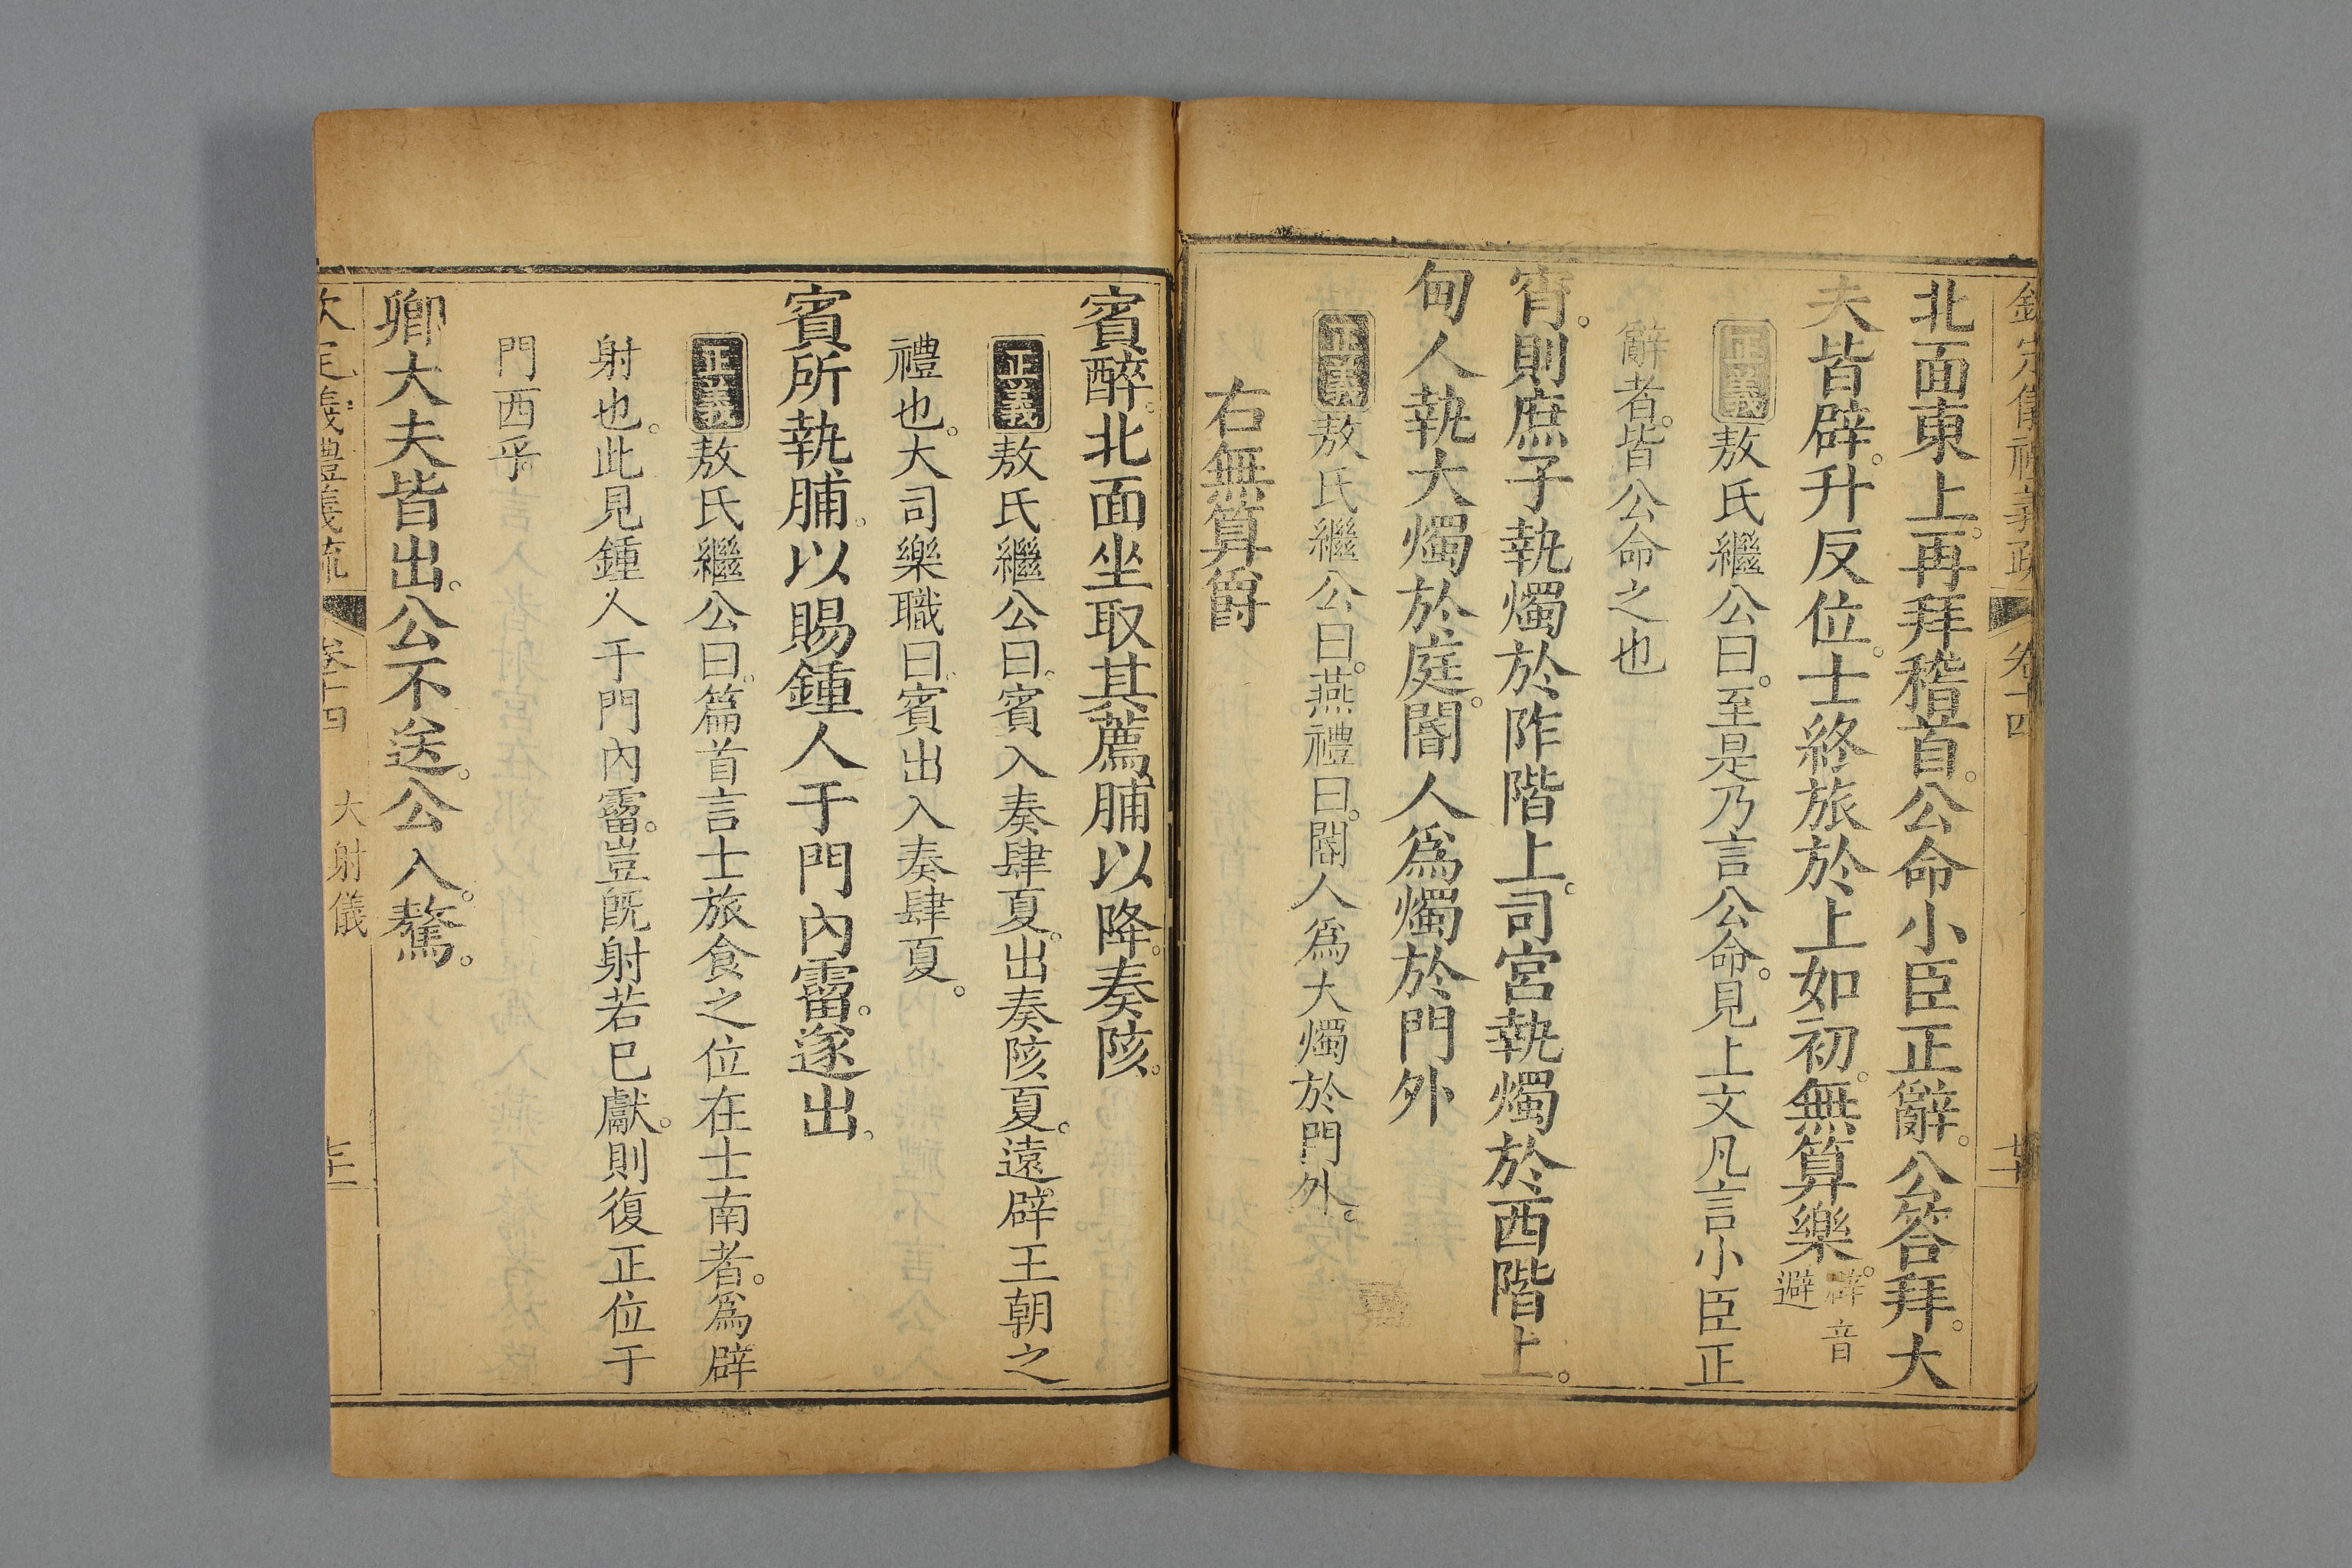 欽定儀禮義疏 卷十四
北面東上。再拜稽首。公命小臣正辭。公答拜。大
夫皆辟。升反位。士終旅於上如初。無算樂。辟音避
正義敖氏繼公曰。至是乃言公命。見上文凡言小臣正
辭者。皆公命之也
宵。則庶子執燭於阼階上。司宮執燭於西階上。
甸人執大燭於庭。閽人為燭於門外
正義敖氏繼公曰。燕禮曰。閽人為大燭於門外。
右無算爵
賓醉。北面坐取其薦脯以降。奏陔。
正義敖氏繼公曰。賓入奏肆夏。出奏陔夏。遠辟王朝之
禮也。大司樂職曰。賓出入奏肆夏。
賓所執脯。以賜鍾人于門內霤。遂出。
正義敖氏繼公曰。篇首言士旅食之位在士南者。為辟
射也。此見鍾人于門內霤。豈既射若已獻。則復正位于
門西乎
卿大夫皆出。公不送。公入驁。
欽定儀禮義疏 卷十四 大射儀